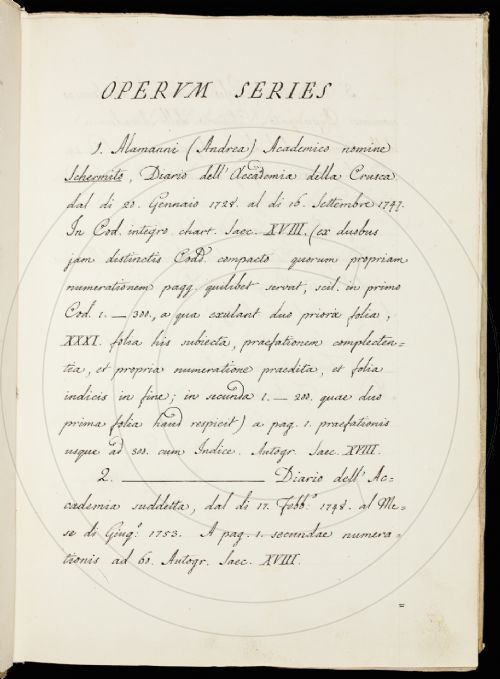 OPERVM SERIES
1. Alamanni (Andrea) Academico nomine
Schermito, Diario dell'Accademia della Crusca
dal di 20. Gennaio 1728. al di 16. Settembre 1747.
In Cod. integro chart. Saec. XVIII. (ex duobus
jam distinctis Codd. compacto quorum propriam
numerationem pagg. quilibet servat, scil. in primo
Cod. 1. — 300., a qua exulant duo priora folia;
XXXI. folia his subiecta, praefationem complecten-
tia, et propria numeratione praedita, et folia
indicis in fine; in secunda 1. — 200. quae duo
prima folia haud respicit) a pag. 1. praefationis
usque ad 300. cum Indice. Autogr. Saec. XVIII.
2. ——— Diario dell'Ac-
cademia suddetta, dal di 17. Febb.o 1748. al Me-
se di Giug.o 1753. A pag. 1. secundae numera-
tionis ad 60. Autogr. Saec. XVIII.
=